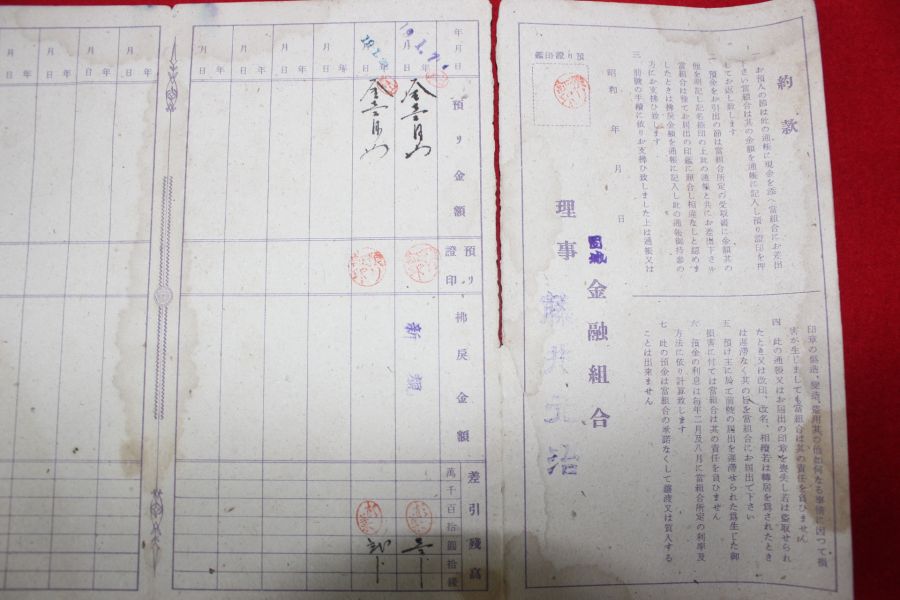 約款
一 お預入の節は此の通帳に現金を添へ當組合にお差出
下さい當組合は其の金額を通帳に記入し預り證印を押
してお返し致します
一 預金をお引出の節は當組合所定の受取書に金額其の
他を明記し記名捺印の上此の通帳と共にお差出下さル
當組合は豫てお届出の印鑑に照合し相違なしと認めま
したときは拂戻金額を通帳に記入し此の通帳御持參の
方にお支拂ひ致します
三 前號の手續に依りお支拂ひ致しました上は通帳又は
印章の僞造、變造、盜用其の他如何なる事情に因つて損
害が生じましても當組合は其の責任を負ひません
四 此の通帳又はお届出の印章を喪失し若は盜取せられ
たとき又は改印、改名、相續若は轉居を爲されたとき
は遲滯なく其の旨を當組合にお届出で下さい
五 預け主に於て前號の届出を遲滯せられた爲生じた御
損害に付ては當組合は其の責任を負ひません
六 預金の利息は每年二月及八月に當組合所定の利率及
方法に依り計算致します
七 此の預金は當組合の承諾なくして讓渡又は質入する
ことは出來ません
預り證印鑑
昭和 年 月 日
金融組合
理事
年月日
預り金額
預り證印
拂戻金額
差引殘高
萬千百拾圓拾錢
年 月 日
年 月 日
年 月 日
年 月 日
年 月 日
年 月 日
年 月 日
年 月 日
新規